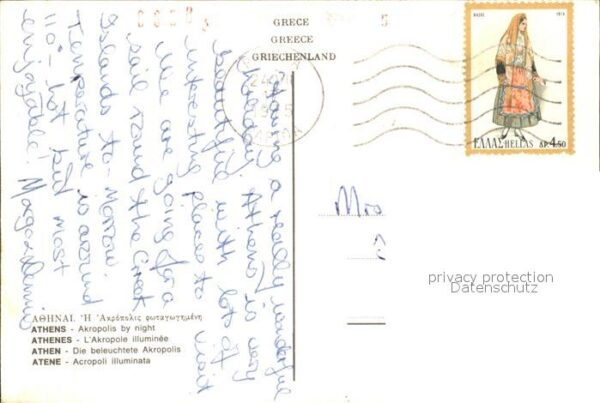 GRECE
GREECE
GRIECHENLAND
1974
ΕΛΛΑΣ HELLAS ΔΡ. 4.50
Having a really wonderful
holiday, Athens is very
beautiful with lots of
interesting places to visit
We are going for a
sail round the Greek
Islands to-morrow.
Temperature is around
110° - hot but most
enjoyable!
Mrs
privacy protection
Datenschutz
ΑΘΗΝΑΙ. Ἡ Ἀκρόπολις φωταγωγημένη
ATHENS - Akropolis by night
ATHENES - L'Akropole illuminée
ATHEN - Die beleuchtete Akropolis
ATENE - Acropoli illuminata